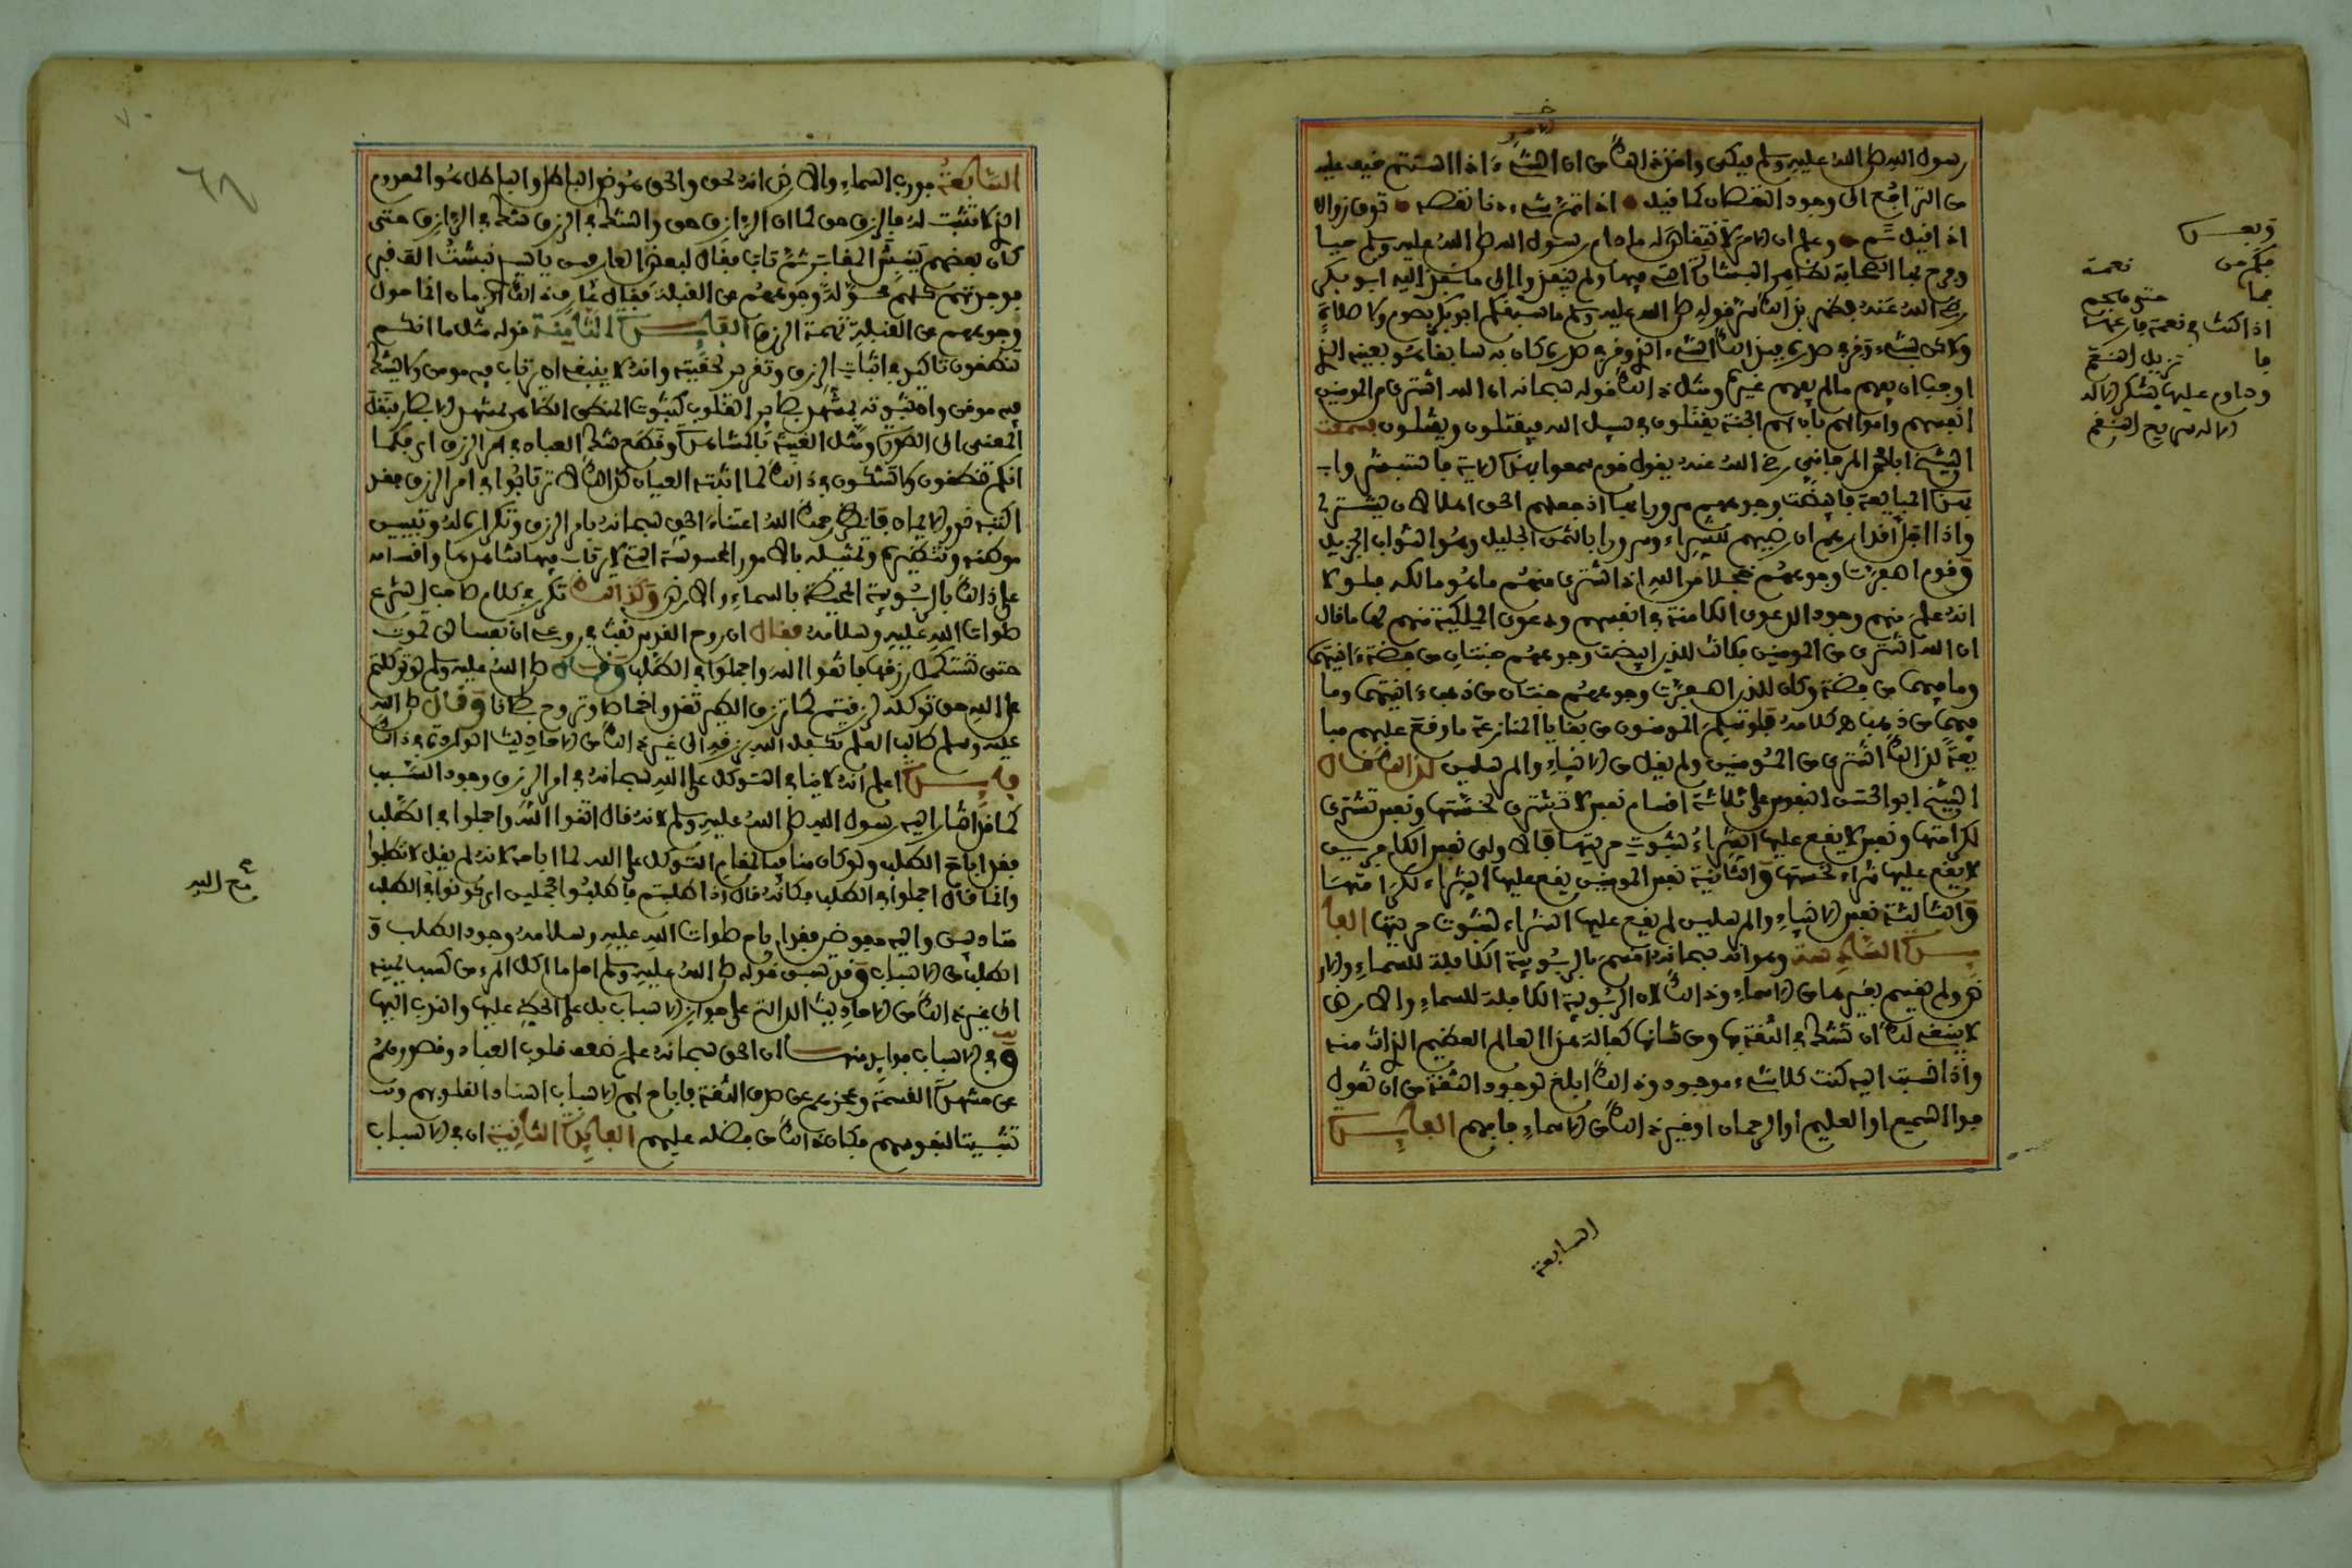 رسول الله صلى الله عليه وسلم فبكى واخذ من ذلك من ان الشيء اذا استتم خيف عليه
من التراجع الى وجود النقصان كما قيل اذا تم شيء دنا نقصه توقع زوالا
اذا قيل تم وعلم ان الامر لا يتناقص ما دام رسول الله صلى الله عليه وسلم حيا
وفرح بها الصحابة لظاهر البشارة التي فيها ولم ينفذوا الى ما نفذ اليه ابو بكر
رضي الله عنه فظهر بذلك سر قوله صلى الله عليه وسلم ما سبقكم ابو بكر بصوم ولا صلاة
ولكن بشيء وقر في صدره فبذلك الشيء الذي وقر في صدره كان به سابقا هو بعينه الذي
اوجب ان يفهم ما لم يفهم غيره ومثل ذلك قوله سبحانه ان الله اشترى من المومنين
انفسهم واموالهم بان لهم الجنة يقتلون في سبيل الله فيقتلون ويقتلون سمعت
الشيخ ابا محمد المرجاني رضي الله عنه يقول قوم سمعوا هذه الاية فاستبشروا
بهذه المبايعة فابيضت وجوههم سرورا بها اذ جعلهم الحق اهلا لان يشتري
واذا اجل اقدارهم ان رضيهم للشراء وسرورا بالثمن الجليل وهو الثواب الجزيل
وقوم اصفرت وجوههم خجلا من الله اذ اشترى منهم ما هو مالكه فلولا
انه علم منهم وجود الدعوى الكامنة في انفسهم ودعوى المالكية منهم لها ما قال
ان الله اشترى من المومنين فكانت للذين ابيضت وجوههم جنتان من فضة انيتهما
وما فيهما من فضة وكان للذين اصفرت وجوههم جنتان من ذهب انيتهما وما
فيهما من ذهب كلامه فلو تسلم المومنون من بقايا المنازعة ما وقع عليهم مبا
يعة لذلك اشترى من المومنين ولم يقل من الانبياء والمرسلين لذلك قال
الشيخ ابو الحسن النفوس على ثلاثة اقسام نفس لا تشترى لخستها ونفس تشترى
لكرامتها ونفس لا يقع عليها الشراء لثبوت حريتها فالاولى نفس الكافرين
لا يقع عليها شراء لخستها والثانية نفس المومنين يقع عليها الشراء لكرامتها
والثالثة نفس الانبياء والمرسلين لم يقع عليها الشراء لثبوت حريتها الفا
يدة السادسة وهو انه سبحانه اقسم بالربوبية الكافلة للسماء والار
ض ولم يقسم بغيرها من الاسماء وذلك لان الربوبية الكافلة للسماء والارض
لا ينبغي لك ان تشك في الثقة بها ومن شانها كفالة هذا العالم العظيم الذي انت منه
واذا نسبت اليه كنت كلا شيء موجود وذلك ابلغ لوجود الثقة من ان يقول
فو السميع او العليم او الرحمان او غير ذلك من الاسماء فافهم الفايدة
السابعة
وبعـ
فكم من نعمة
اذا كنت في نعمة فارعها
فا تزيل النعم
وداوم عليها بشكر الاله
فان الاله سريع النقم
السابعة فورب السماء والارض انه لحق والحق هو ضد الباطل والباطل هو المعدوم
الذي لا تثبت له فالرزق حق كما ان الرازق حق والشك في الرزق شك في الرازق حتى
كان بعضهم ينبش المقابر ثم تاب فقال لبعض العارفين يا سيدي نبشت الف قبر
فوجدتهم كلهم محولة وجوههم عن القبلة فقال عارف ذلك الزمان انما حول
وجوههم عن القبلة تهمة الرزق الفايدة الثامنة قوله مثل ما انكم
تنطقون تاكيد في اثبات الرزق وتقرير لحقيته وانه لا ينبغي ان يرتاب فيه مومن ولا يشك
فيه موقن وان ثبوته لمشهد بصاير القلوب كثبوت المنطق الظاهر لمشهد الابصار فنقل
المعنى الى الصورة ومثل الغيب بالمشاهدة وقطع شك العباد في امر الرزق اي فكما
انكم تنطقون ولا تشكون في ذلك لما اثبته العيان كذلك لا ترتابوا في امر الرزق فقد
اثبته نور الايمان فانظر رحمك الله اعتناء الحق سبحانه بامر الرزق وتكراره له وتبيين
موطنه وتنظيره وتمثيله بالامور المحسوسة التي لا يرتاب فيها شاهدها واقسامه
على ذلك بالربوبية المحيطة بالسماء والارض وكذلك تكرر في كلام صاحب الشرع
صلوات الله عليه وسلامه فقال ان روح القدس نفث في روعي ان نفسا لن تموت
حتى تستكمل رزقها فاتقوا الله واجملوا في الطلب وقال صلى الله عليه وسلم لو توكلتم
على الله حق توكله لرزقتم كما ترزق الطير تغدوا خماصا وتروح بطانا وقال صلى الله
عليه وسلم طالب العلم تكفل الله برزقه الى غير ذلك من الاحاديث الواردة في ذلك
فايدة اعلم انه لا ينافي التوكل على الله سبحانه في امر الرزق وجود السبب
كما قد اشار اليه رسول الله صلى الله عليه وسلم لانه قال اتقوا الله واجملوا في الطلب
فقد اباح الطلب ولو كان منافيا لمقام التوكل على الله لما اباحه لانه لم يقل لا تطلبوا
وانما قال اجملوا في الطلب فكانه قال اذا طلبتم فاطلبوا مجملين اي كونوا في الطلب
متادبين واليه مفوضين فقد اباح صلوات الله عليه وسلامه وجود الطلب و
الطلب من الاسباب وقد سبق قوله صلى الله عليه وسلم احل ما اكل المرء من كسب يمينه
الى غير ذلك من الاحاديث الدالة على جواز الاسباب بل على الحض عليها والندب اليها
وفي الاسباب فوايد منها ان الحق سبحانه علم ضعف قلوب العباد وقصورهم
عن مشهد القسمة وعجزهم عن صدق الثقة فاباح لهم الاسباب اسنادا لقلوبهم و
تثبيتا لنفوسهم فكان ذلك من فضله عليهم الفايدة الثانية ان في الاسباب
مع الله